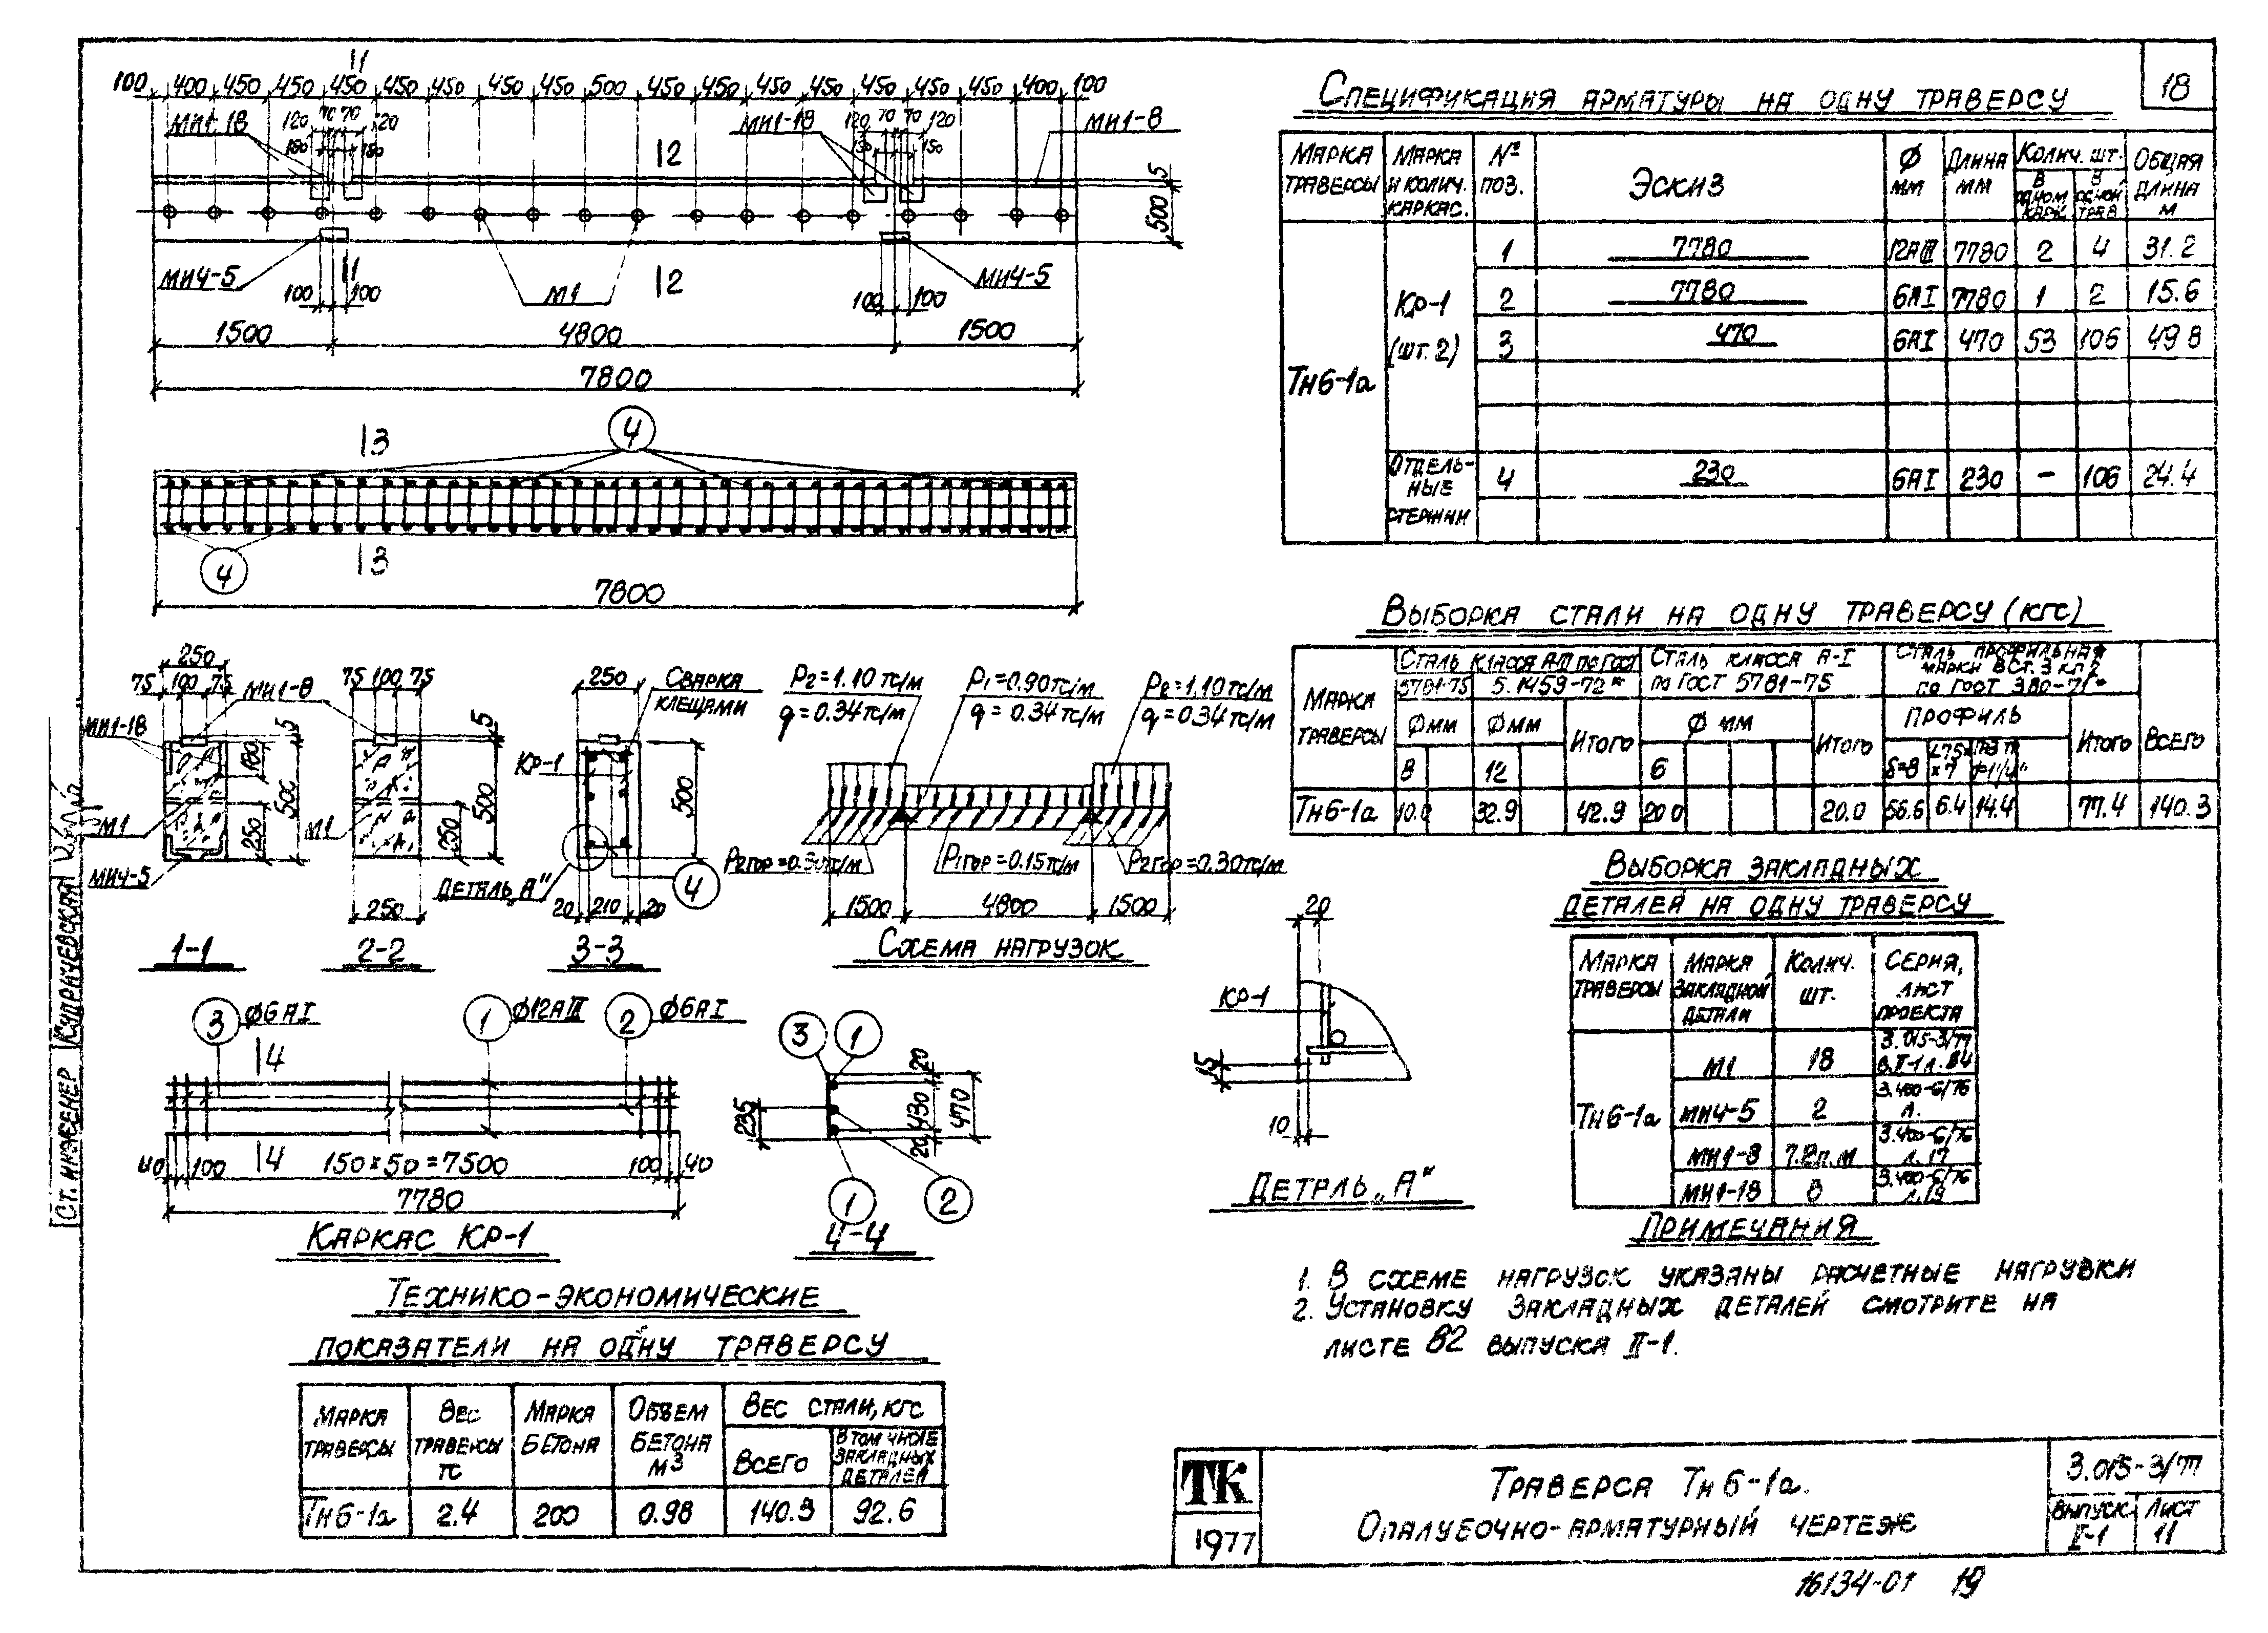 18
11
100 400 450 450 450 450 450 450 450 500 450 450 450 450 450 450 450 400 100
МИ1-18 120 70 70 120 МИ1-18 120 70 70 120 МИ1-8
12
5
500
МИ4-5 11 М1 12 МИ4-5
100 100 100 100
1500 4800 1500
7800
4
13
13
4
7800
250
75 100 75
МИ1-8
МИ1-18
5
180
500
250
М1
МИ4-5
1-1
75 100 75
5
500
250
М1
250
2-2
250
Сварка
клещами
КР-1
500
Деталь „А"
4
20 210 20
3-3
Р2=1.10 тс/м Р1=0.90тс/м Р2=1.10тс/м
q=0.34тс/м q=0.34тс/м q=0.34тс/м
Р2гор=0.30тс/м Р1гор=0.15тс/м Р2гор=0.30тс/м
1500 4800 1500
Схема нагрузок
3 ∅6АI 1 ∅12АIII 2 ∅6АI
14
14
40 100 150×50=7500 100 40
7780
Каркас КР-1
3 1
20
430
470
235
20
1 2
4-4
20
КР-1
15
10
Деталь „А"
Спецификация арматуры на одну траверсу
Марка траверсы
Марка и колич. каркас.
№ поз.
Эскиз
∅ мм
Длина мм
Колич. шт.
в одном карк.
в одной трав
Общая длина м
Тн6-1а
КР-1 (шт. 2)
1 7780 12АIII 7780 2 4 31.2
2 7780 6АI 7780 1 2 15.6
3 470 6АI 470 53 106 49.8
Отдельные стержни
4 230 6АI 230 - 106 24.4
Выборка стали на одну траверсу (кгс)
Марка траверсы
Сталь класса А-III по ГОСТ
5781-75 5.1459-72*
Сталь класса А-I
по ГОСТ 5781-75
Сталь профильная
марки ВСт.3 кп2
по ГОСТ 380-71*
∅мм ∅мм Итого ∅ мм Итого Профиль Итого Всего
8 12 6 δ=8 ∟75×7
Тн6-1а 10.0 32.9 42.9 20.0 20.0 56.6 6.4 14.4 77.4 140.3
Выборка закладных
деталей на одну траверсу
Марка траверсы
Марка закладной детали
Колич. шт.
Серия, лист проекта
Тн6-1а
М1 18 3.015-3/77 В.II-1 л. 84
МИ4-5 2 3.400-6/76 л.
МИ1-8 7.2п.м 3.400-6/76 л.17
МИ1-18 8 3.400-6/76 л.19
Примечания
1. В схеме нагрузок указаны расчетные нагрузки
2. Установку закладных деталей смотрите на
листе 82 выпуска II-1.
Технико-экономические
показатели на одну траверсу
Марка траверсы
Вес траверсы тс
Марка бетона
Объем бетона м3
Вес стали, кгс
Всего
В том числе закладных деталей
Тн6-1а 2.4 200 0.98 140.3 92.6
ТК
1977
Траверса Тн6-1а.
Опалубочно-арматурный чертеж
3.015-3/77
Выпуск II-1
Лист 11
16134-01 19
Ст. инженер Купричевская